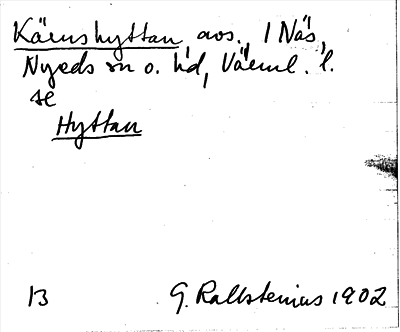 Kärnshyttan, avs., 1 Näs,
Nyeds sn o. hd, Värml. l.
se
Hyttan
13 G. Kallstenius 1902